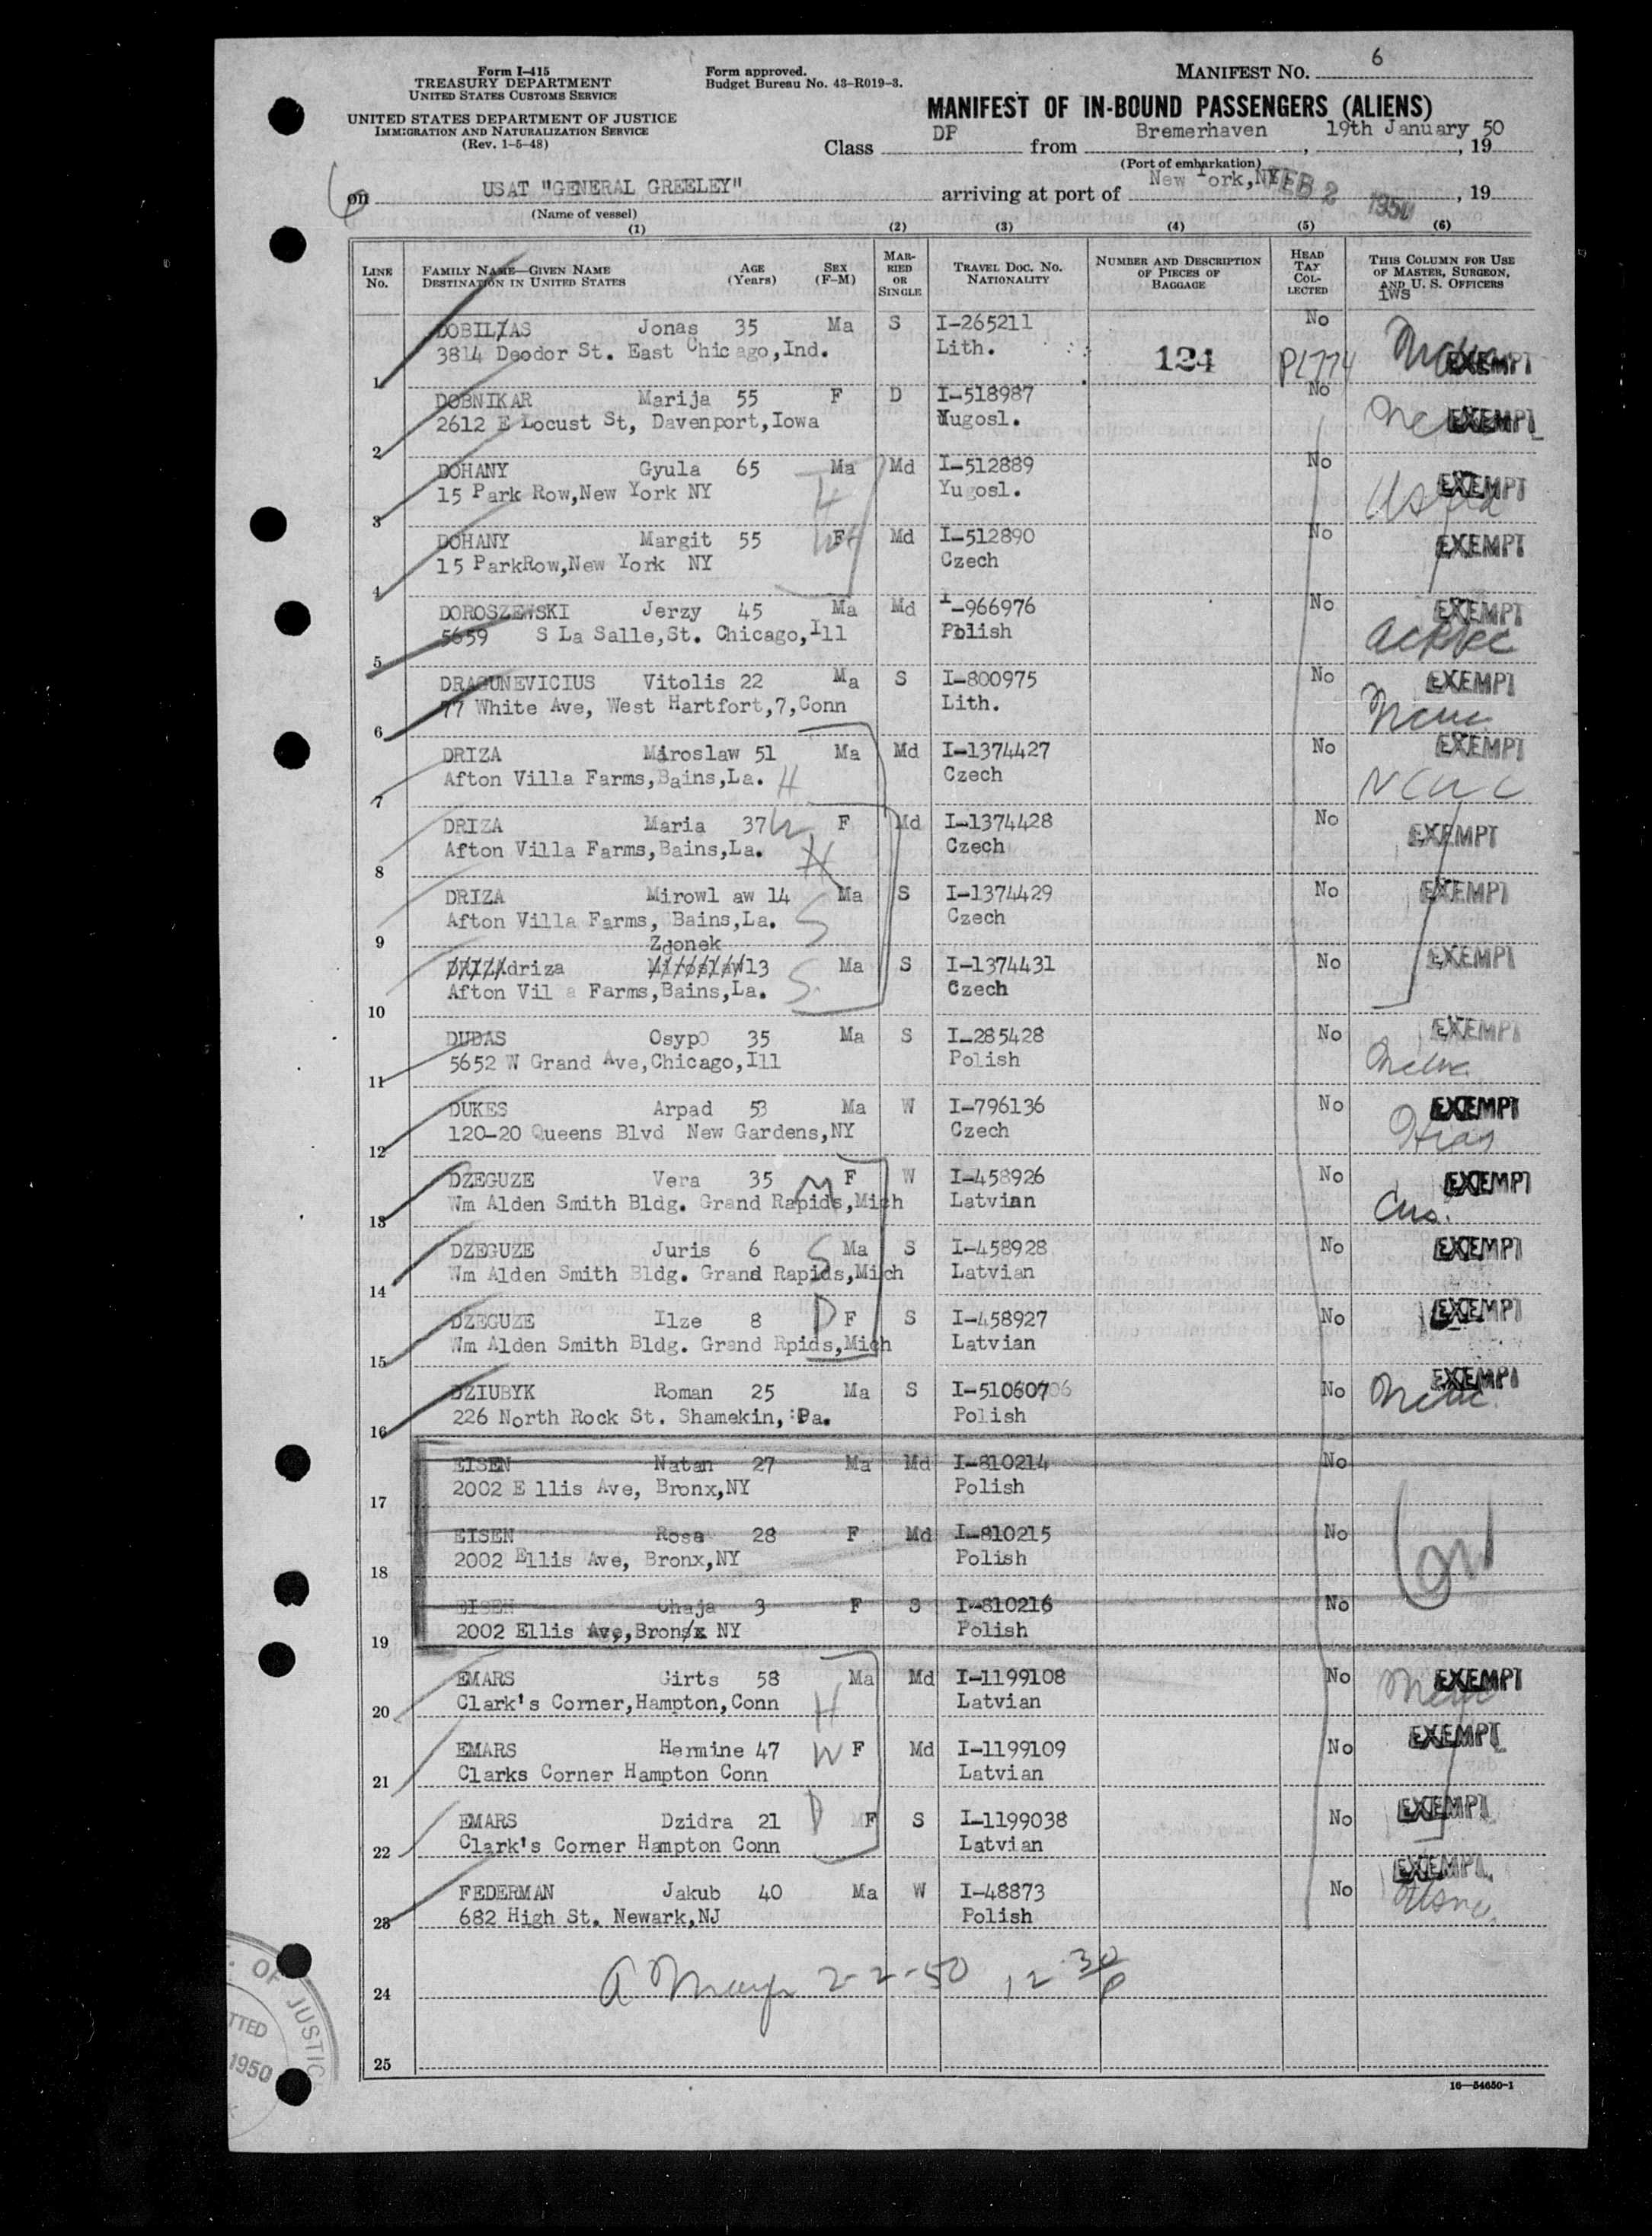 Form I-415
TREASURY DEPARTMENT
UNITED STATES CUSTOMS SERVICE
UNITED STATES DEPARTMENT OF JUSTICE
IMMIGRATION AND NATURALIZATION SERVICE
(Rev. 1-5-48)
Form approved.
Budget Bureau No. 43-R019-3.
MANIFEST NO. 6
MANIFEST OF IN-BOUND PASSENGERS (ALIENS)
Class DP from Bremerhaven, 19th January 50, 19
(Port of embarkation)
on USAT "GENERAL GREELEY" arriving at port of New York, NY FEB 2 1950, 19
(Name of vessel)
(1) (2) (3) (4) (5) (6)
LINE NO.
FAMILY NAME—GIVEN NAME
DESTINATION IN UNITED STATES
AGE (Years)
SEX (F-M)
MARRIED OR SINGLE
TRAVEL DOC. NO. NATIONALITY
NUMBER AND DESCRIPTION OF PIECES OF BAGGAGE
HEAD TAX COLLECTED
THIS COLUMN FOR USE OF MASTER, SURGEON, AND U. S. OFFICERS
iws
DOBILAS Jonas 35 Ma S I-265211 No
3814 Deodor St. East Chicago, Ind. Lith. 124 EXEMPT
1
DOBNIKAR Marija 55 F D I-518987 No
2612 E Locust St, Davenport, Iowa Yugosl. EXEMPT
2
DOHANY Gyula 65 Ma Md I-512889 No
15 Park Row, New York NY H Yugosl. EXEMPT
3
DOHANY Margit 55 F Md I-512890 No
15 ParkRow, New York NY Czech EXEMPT
4
DOROSZEWSKI Jerzy 45 Ma Md I-966976 No EXEMPT
5659 S La Salle, St. Chicago, Ill Polish
5
DRAGUNEVICIUS Vitolis 22 Ma S I-800975 No EXEMPT
77 White Ave, West Hartfort, 7, Conn Lith.
6
DRIZA Miroslaw 51 Ma Md I-1374427 No EXEMPT
Afton Villa Farms, Bains, La. H Czech NCWC
7
DRIZA Maria 37 W F Md I-1374428 No EXEMPT
Afton Villa Farms, Bains, La. Czech
8
DRIZA Mirowl aw 14 Ma S I-1374429 No EXEMPT
Afton Villa Farms, Bains, La. S Czech
9
Zdonek
DRIZA driza Miroslaw 13 Ma S I-1374431 No EXEMPT
Afton Vil a Farms, Bains, La. S Czech
10
DUDAS Osypo 35 Ma S I-285428 No EXEMPT
5652 W Grand Ave, Chicago, Ill Polish
11
DUKES Arpad 53 Ma W I-796136 No EXEMPT
120-20 Queens Blvd New Gardens, NY Czech Hias
12
DZEGUZE Vera 35 M F W I-458926 No EXEMPT
Wm Alden Smith Bldg. Grand Rapids, Mich Latvian
13
DZEGUZE Juris 6 S Ma S I-458928 No EXEMPT
Wm Alden Smith Bldg. Grand Rapids, Mich Latvian
14
DZEGUZE Ilze 8 D F S I-458927 No EXEMPT
Wm Alden Smith Bldg. Grand Rpids, Mich Latvian
15
DZIUBYK Roman 25 Ma S I-510607 No EXEMPT
226 North Rock St. Shamekin, Pa. Polish
16
EISEN Natan 27 Ma Md I-810214 No
2002 E llis Ave, Bronx, NY Polish
17
EISEN Rosa 28 F Md I-810215 No
2002 Ellis Ave, Bronx, NY Polish
18
EISEN Chaja 3 F S I-810216 No
2002 Ellis Ave, Bronx NY Polish
19
EMARS Girts 58 Ma Md I-1199108 No EXEMPT
Clark's Corner, Hampton, Conn H Latvian
20
EMARS Hermine 47 W F Md I-1199109 No EXEMPT
Clarks Corner Hampton Conn Latvian
21
EMARS Dzidra 21 D F S I-1199038 No EXEMPT
Clark's Corner Hampton Conn Latvian
22
FEDERMAN Jakub 40 Ma W I-48873 No EXEMPT
682 High St. Newark, NJ Polish
23
2-2-50 12 30
24
25
16—54650-1
OF JUSTIC
TTED
1950